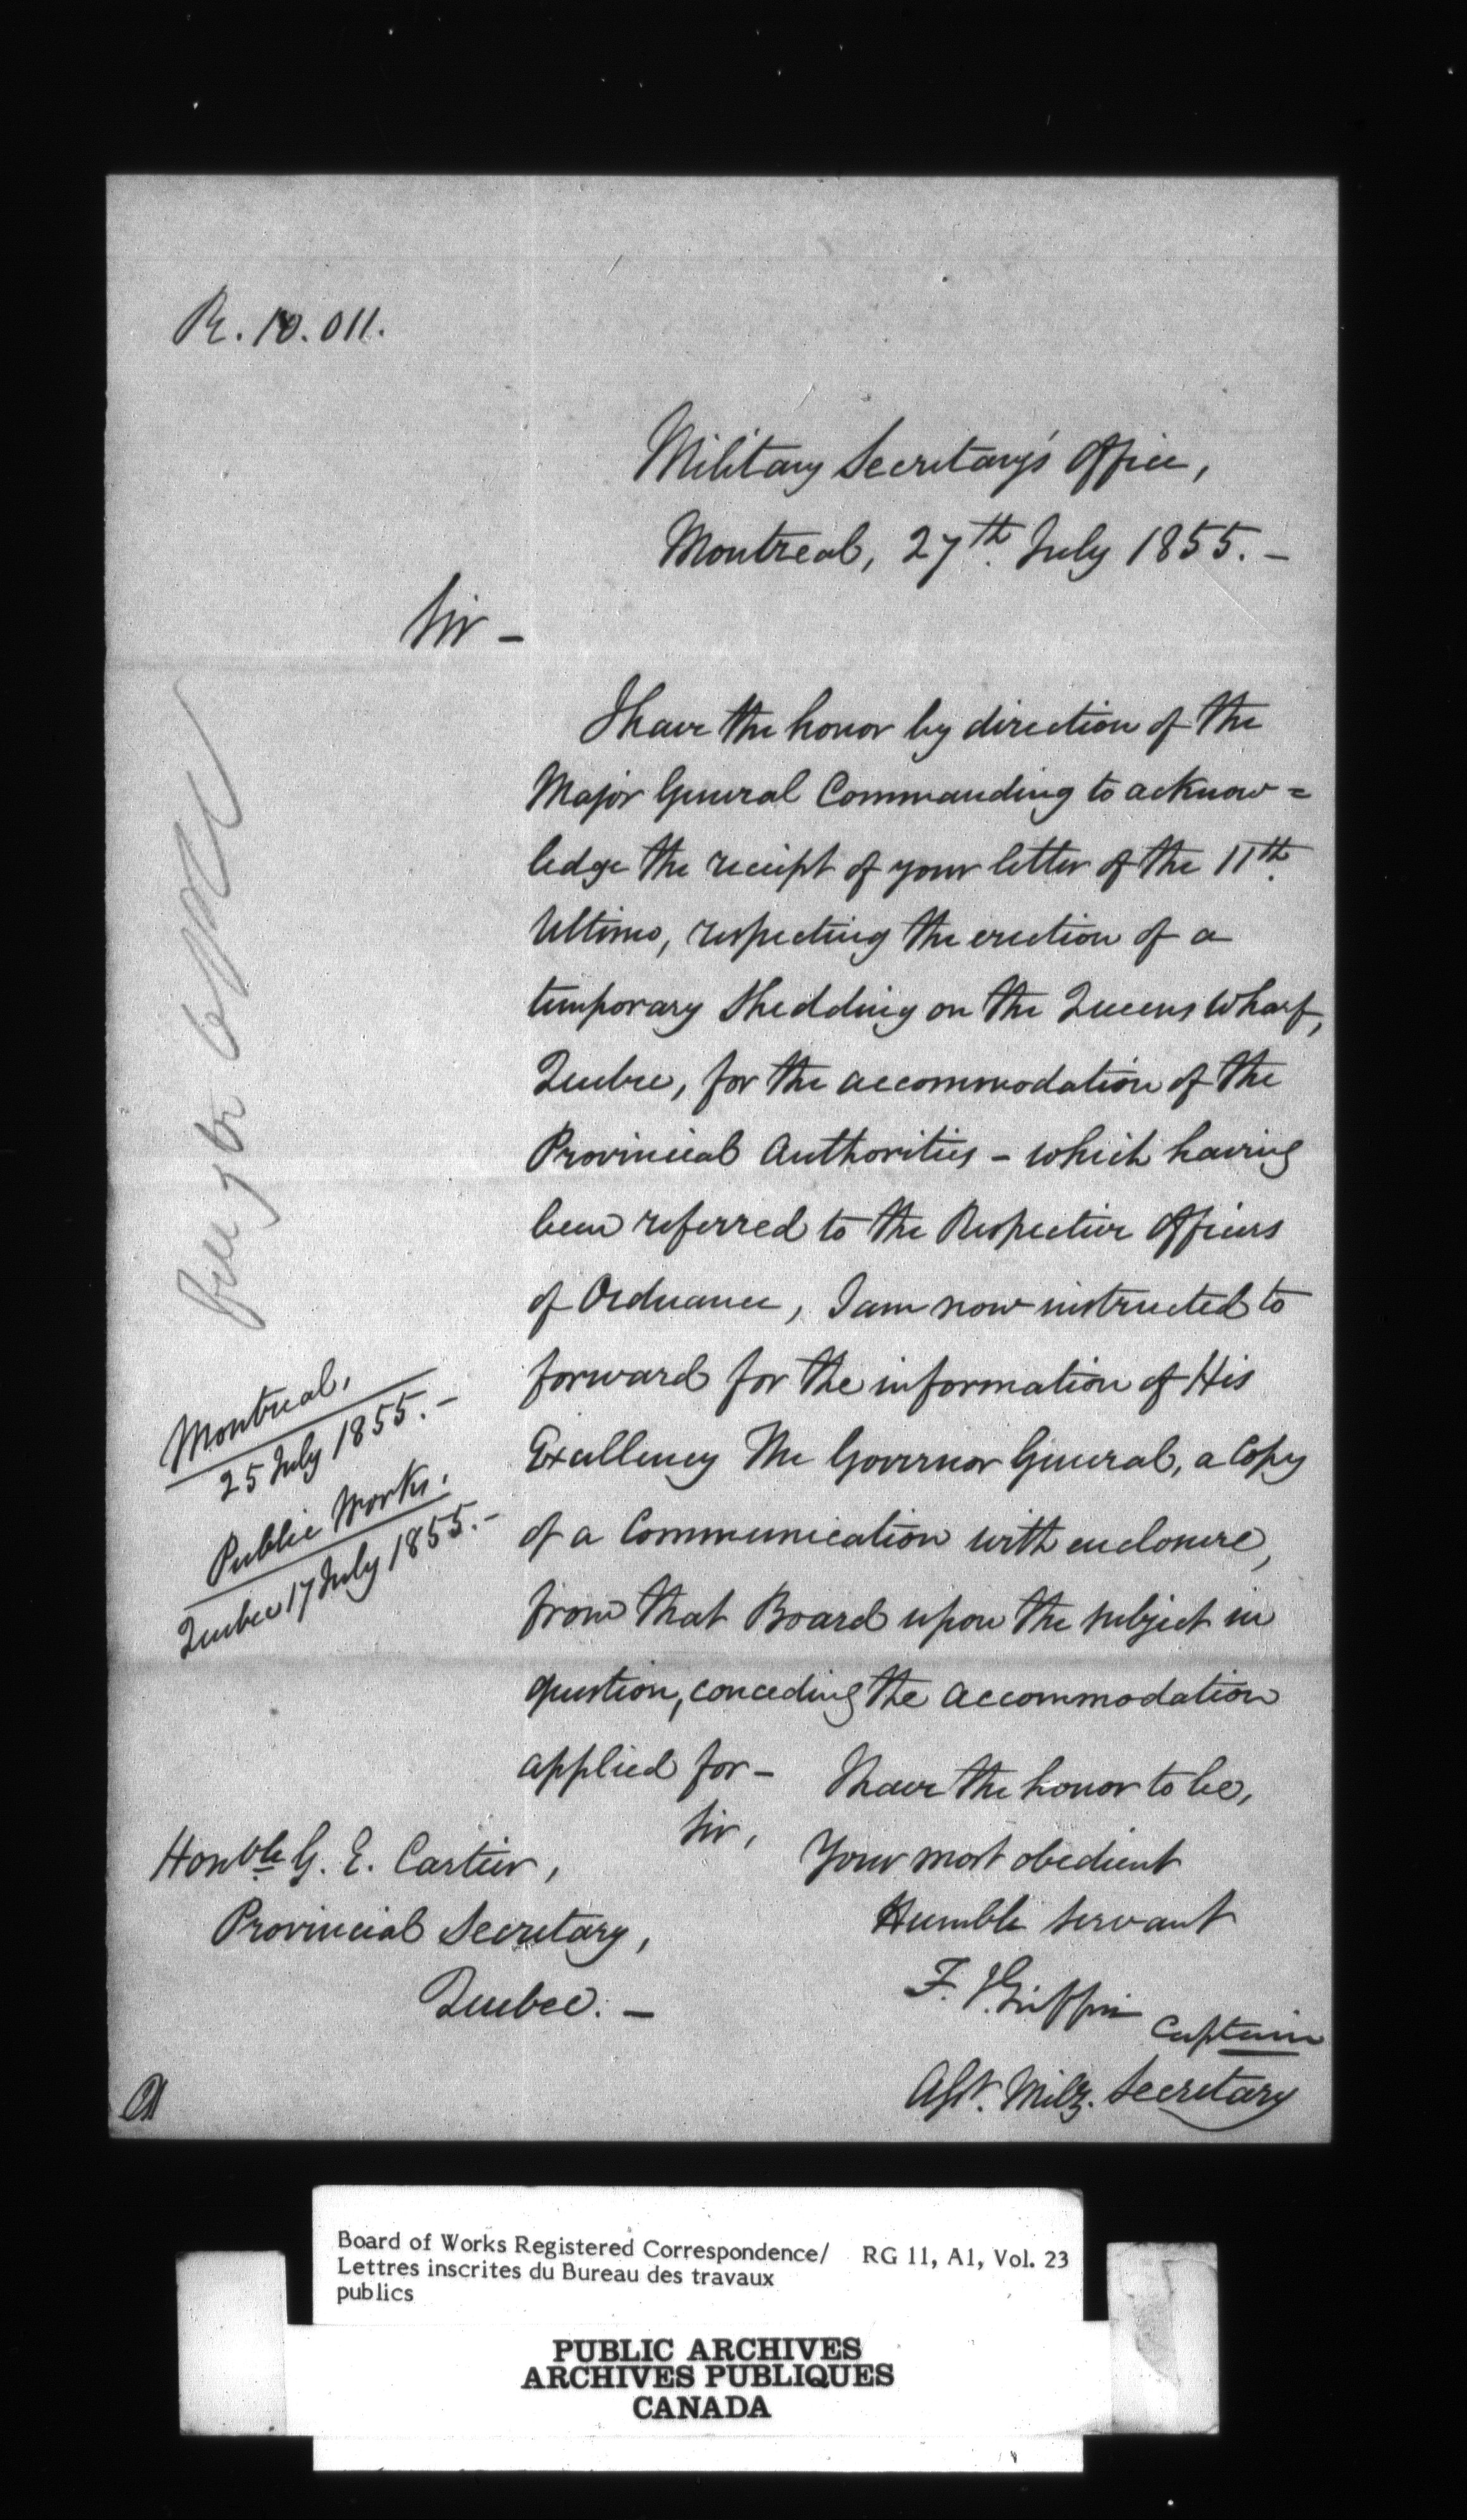 R. 10.011.
Military Secretary's Office,
Montreal, 27th. July 1855. -
Sir -
I have the honor by direction of the
Major General Commanding to acknow=
ledge the receipt of your letter of the 11th.
Ultimo, respecting the erection of a
temporary Shedding on the Queens Wharf,
Quebec, for the accommodation of the
Provincial Authorities - which having
been referred to the Respective Officers
of Ordnance, I am now instructed to
forward for the information of His
Excellency The Governor General, a Copy
of a Communication with enclosure,
from that Board upon the subject in
question, conceding the accommodation
applied for -
Montreal,
25 July 1855. -
Public Works.
Quebec 17 July 1855. -
I have the honor to be,
Sir,
Your most obedient
Humble Servant
F. Griffin
Captain
Asst. Mily. Secretary
Honble G. E. Cartier,
Provincial Secretary,
Quebec. -
Board of Works Registered Correspondence/ RG 11, A1, Vol. 23
Lettres inscrites du Bureau des travaux
publics
PUBLIC ARCHIVES
ARCHIVES PUBLIQUES
CANADA